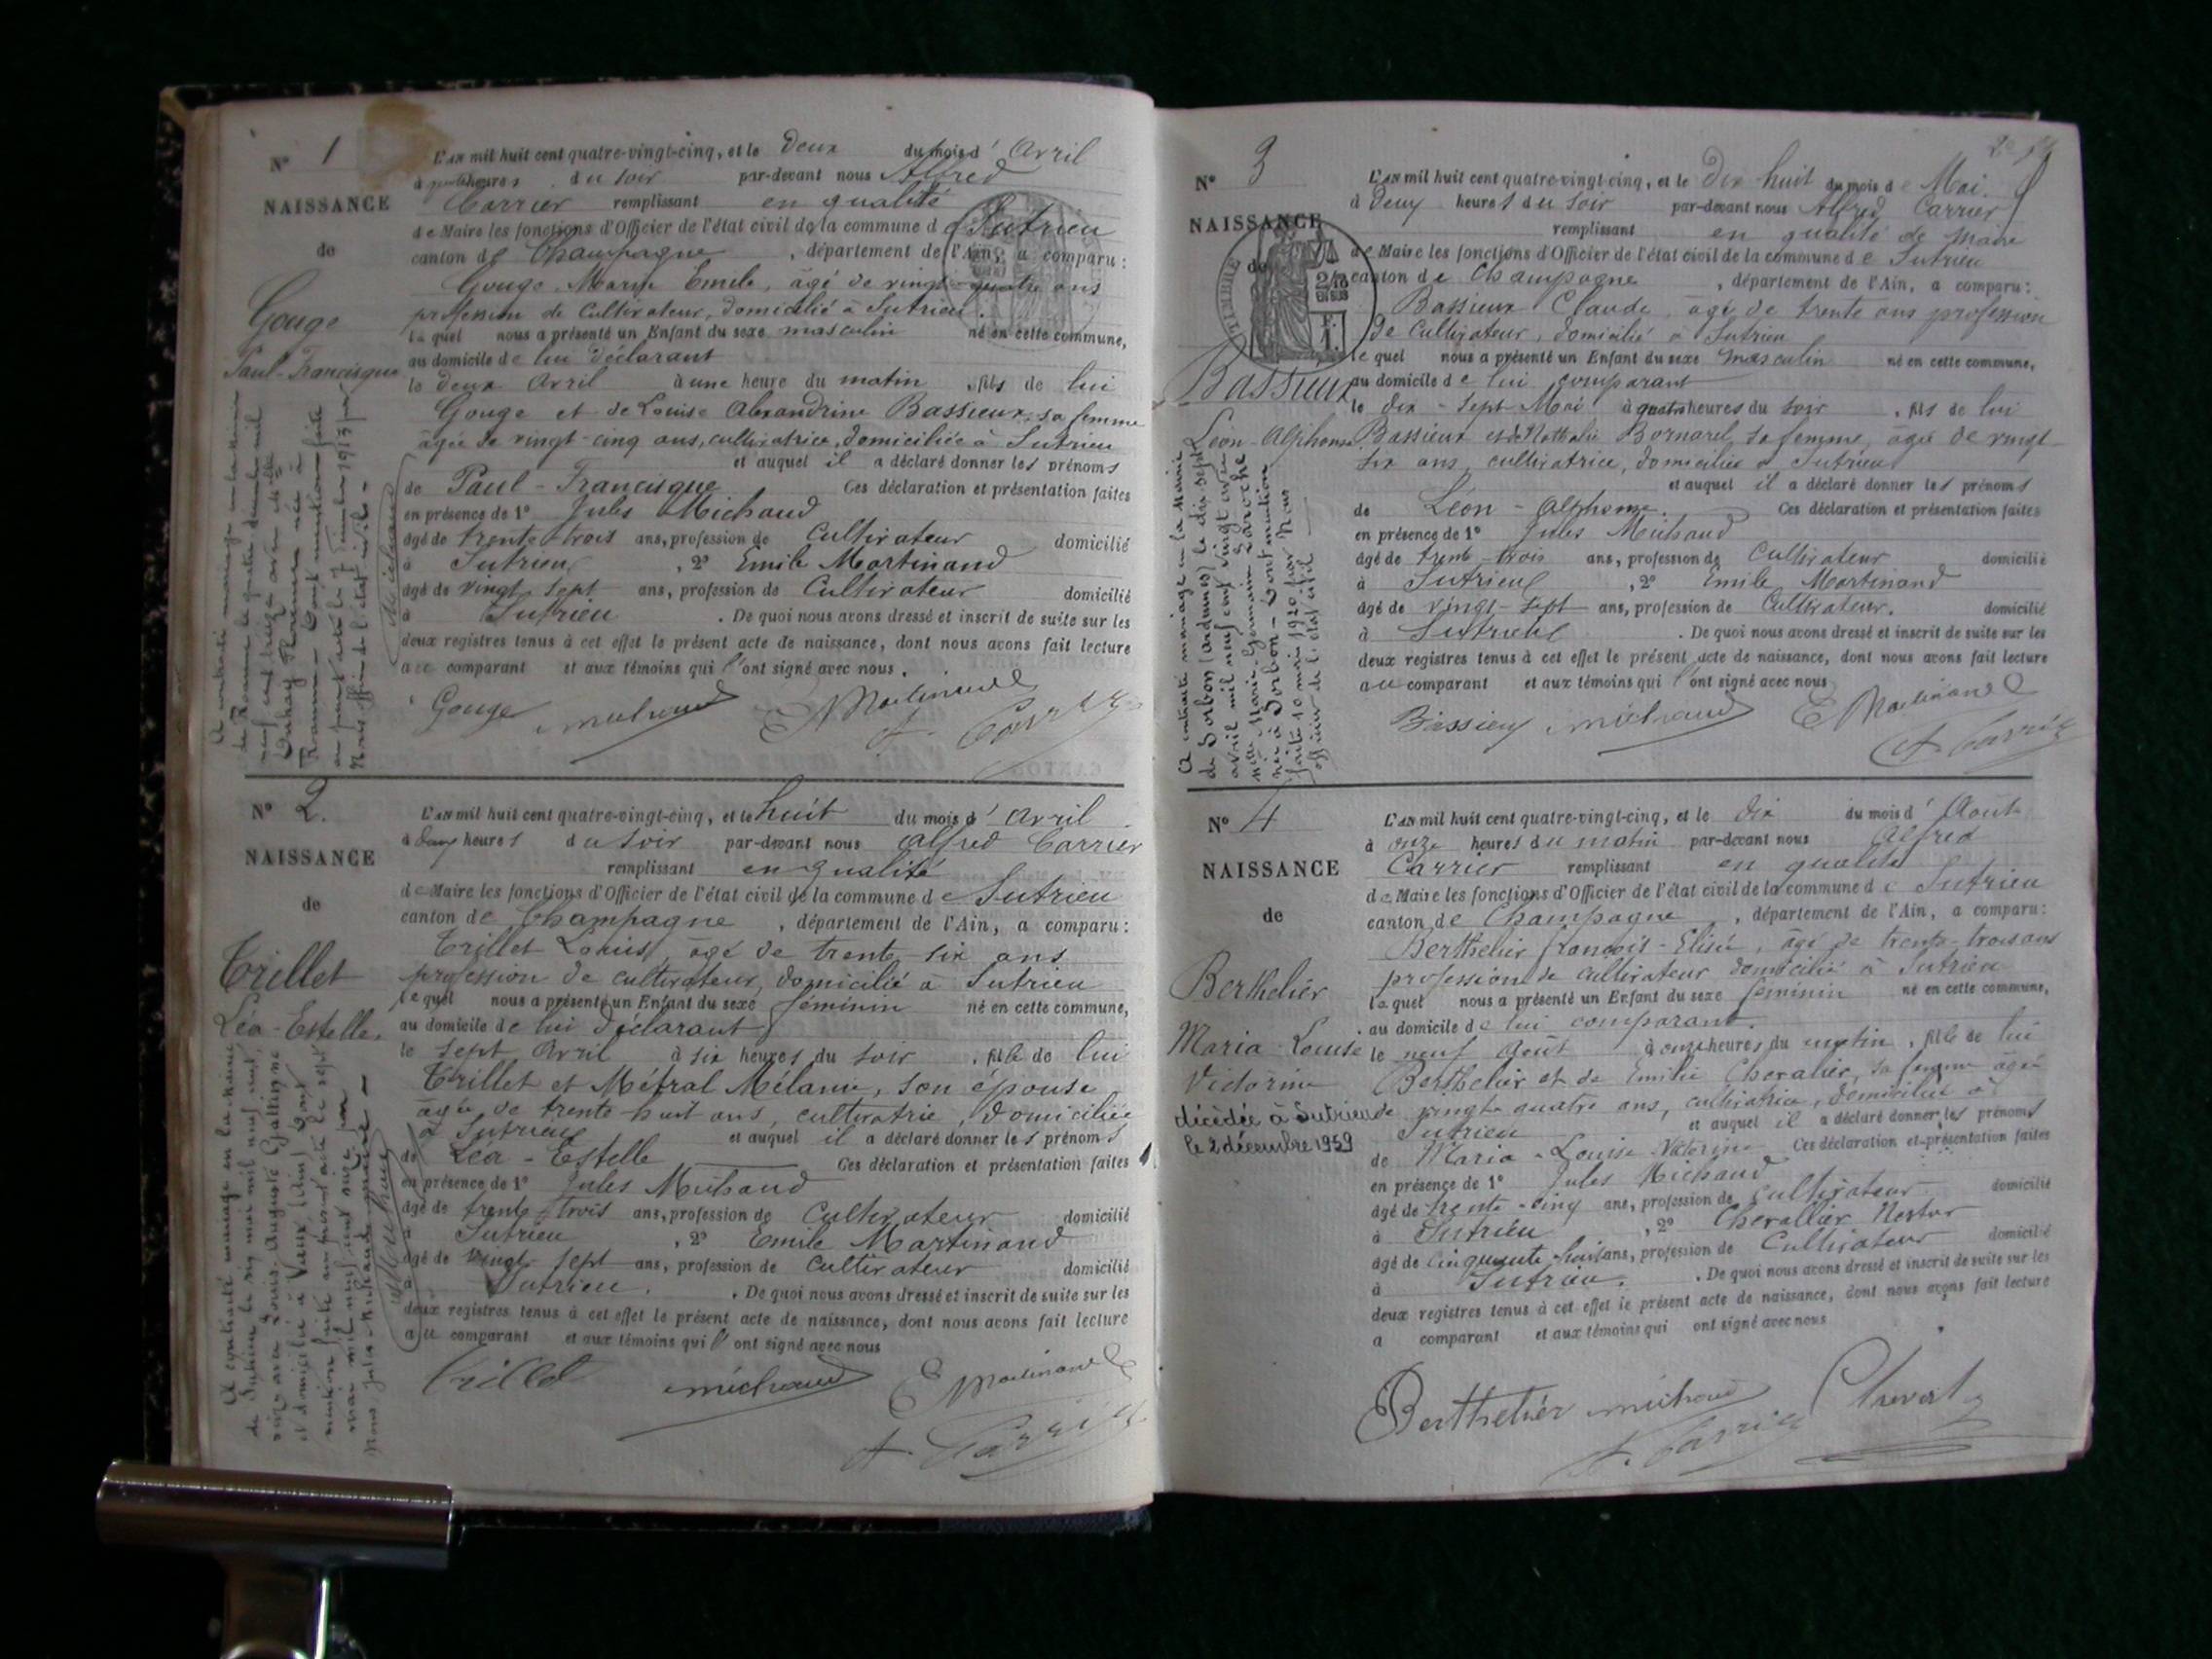 N° 1
NAISSANCE
de
Gouge
Paul-Francisque
L'AN mil huit cent quatre-vingt-cinq, et le Deux du mois d' Avril
à heures du soir par-devant nous Alfred
Carrier remplissant en qualité
de Maire les fonctions d'Officier de l'état civil de la commune de Sutrieu
canton de Champagne, département de l'Ain, a comparu:
Gouge Marie Emile, âgé de vingt-quatre ans
profession de Cultivateur, domicilié à Sutrieu.
lequel nous a présenté un Enfant du sexe masculin né en cette commune,
au domicile de lui déclarant
le deux Avril à une heure du matin, fils de lui
Gouge et de Louise Alexandrine Bassieux sa femme
âgée de vingt-cinq ans, cultivatrice, domiciliée à Sutrieu
et auquel il a déclaré donner les prénoms
de Paul-Francisque Ces déclaration et présentation faites
en présence de 1° Jules Michaud
âgé de trente-trois ans, profession de Cultivateur domicilié
à Sutrieu, 2° Emile Martinand
âgé de vingt sept ans, profession de Cultivateur domicilié
à Sutrieu. De quoi nous avons dressé et inscrit de suite sur les
deux registres tenus à cet effet le présent acte de naissance, dont nous avons fait lecture
au comparant et aux témoins qui l'ont signé avec nous.
Gouge michaud E Martinand
A. Carrier
N° 2.
NAISSANCE
de
Trillet
Léa-Estelle.
L'AN mil huit cent quatre-vingt-cinq, et le huit du mois d' Avril
à deux heures du soir par-devant nous Alfred Carrier
remplissant en qualité
de Maire les fonctions d'Officier de l'état civil de la commune de Sutrieu
canton de Champagne, département de l'Ain, a comparu:
Trillet Louis, âgé de trente-six ans
profession de cultivateur, domicilié à Sutrieu
lequel nous a présenté un Enfant du sexe féminin né en cette commune,
au domicile de lui déclarant
le sept Avril à six heures du soir, fille de lui
Trillet et Métral Mélanie, son épouse
âgée de trente-huit ans, cultivatrice, domiciliée
à Sutrieu et auquel il a déclaré donner les prénoms
de Léa-Estelle Ces déclaration et présentation faites
en présence de 1° Jules Michaud
âgé de trente-trois ans, profession de Cultivateur domicilié
à Sutrieu, 2° Emile Martinand
âgé de vingt sept ans, profession de Cultivateur domicilié
à Sutrieu. De quoi nous avons dressé et inscrit de suite sur les
deux registres tenus à cet effet le présent acte de naissance, dont nous avons fait lecture
au comparant et aux témoins qui l'ont signé avec nous
Trillet michaud E Martinand
A. Carrier
N° 3
NAISSANCE
de
TIMBRE
Bassieux
Léon-Alphonse
A contracté mariage en la Mairie
de Sorbon (Ardennes) le dix sept
avril mil neuf cent vingt avec
Marie Germaine Laroche
née à Sorbon - Dont mention
faite 10 mai 1920 par Nous
officier de l'état civil
L'AN mil huit cent quatre-vingt-cinq, et le Dix huit du mois de Mai
à Deux heures du soir par-devant nous Alfred Carrier
remplissant en qualité de Maire
de Maire les fonctions d'Officier de l'état civil de la commune de Sutrieu
canton de Champagne, département de l'Ain, a comparu:
Bassieux Claude, âgé de trente ans profession
de Cultivateur, domicilié à Sutrieu
lequel nous a présenté un Enfant du sexe masculin né en cette commune,
au domicile de lui comparant
le dix-sept Mai à quatre heures du soir, fils de lui
Bassieux et de Nathalie Bornarel, sa femme, âgée de vingt-
six ans, cultivatrice, domiciliée à Sutrieu
et auquel il a déclaré donner les prénoms
de Léon-Alphonse. Ces déclaration et présentation faites
en présence de 1° Jules Michaud
âgé de trente-trois ans, profession de Cultivateur domicilié
à Sutrieu, 2° Emile Martinand
âgé de vingt-sept ans, profession de Cultivateur. domicilié
à Sutrieu. De quoi nous avons dressé et inscrit de suite sur les
deux registres tenus à cet effet le présent acte de naissance, dont nous avons fait lecture
au comparant et aux témoins qui l'ont signé avec nous
Bassieux michaud E Martinand
A. Carrier
N° 4
NAISSANCE
de
Berthelier
Maria Louise
Victorine
décédée à Sutrieu
le 2 décembre 1959
L'AN mil huit cent quatre-vingt-cinq, et le dix du mois d' Août
à onze heures du matin par-devant nous Alfred
Carrier remplissant en qualité
de Maire les fonctions d'Officier de l'état civil de la commune de Sutrieu
canton de Champagne, département de l'Ain, a comparu:
Berthelier François-Elisé, âgé de trente-trois ans
profession de cultivateur domicilié à Sutrieu
lequel nous a présenté un Enfant du sexe féminin né en cette commune,
au domicile de lui comparant.
le neuf Août à onze heures du matin, fille de lui
Berthelier et de Emilie Chevalier, sa femme âgée
de vingt-quatre ans, cultivatrice, domiciliée à
Sutrieu et auquel il a déclaré donner les prénoms
de Maria-Louise-Victorine Ces déclaration et présentation faites
en présence de 1° Jules Michaud
âgé de trente-cinq ans, profession de Cultivateur domicilié
à Sutrieu, 2° Chevallier Nestor
âgé de cinquante huit ans, profession de Cultivateur domicilié
à Sutrieu. De quoi nous avons dressé et inscrit de suite sur les
deux registres tenus à cet effet le présent acte de naissance, dont nous avons fait lecture
a comparant et aux témoins qui ont signé avec nous
Berthelier michaud
A. Carrier